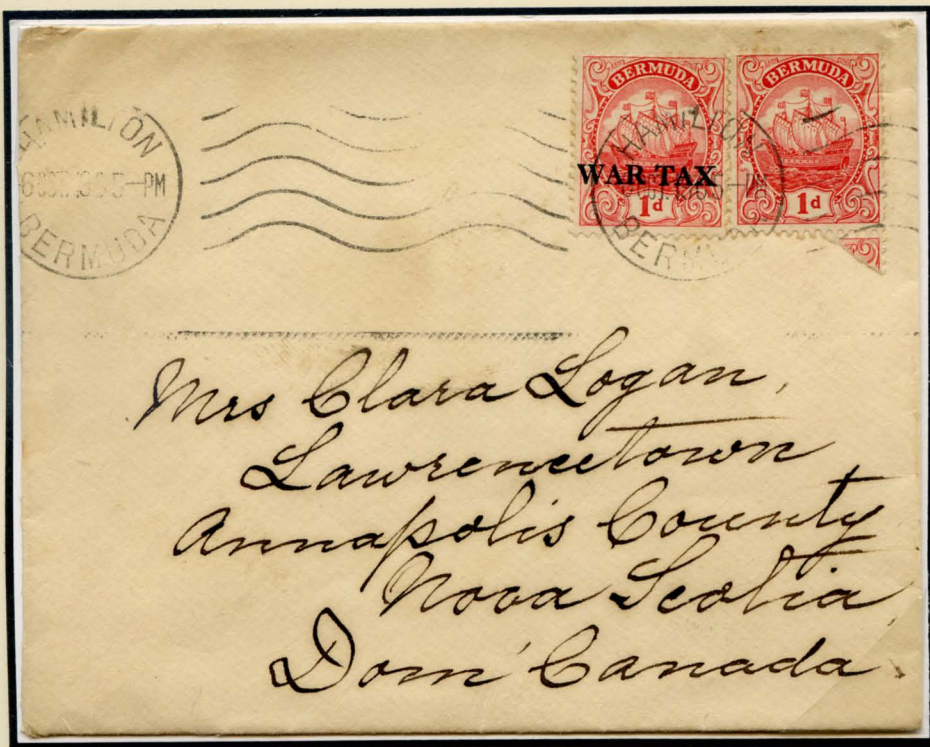 HAMILTON
5-PM
BERMUDA
BERMUDA
WAR TAX
1d
BERMUDA
1d
HAMILTON
Mrs Clara Logan,
Lawrencetown
Annapolis County
Nova Scotia
Dom' Canada